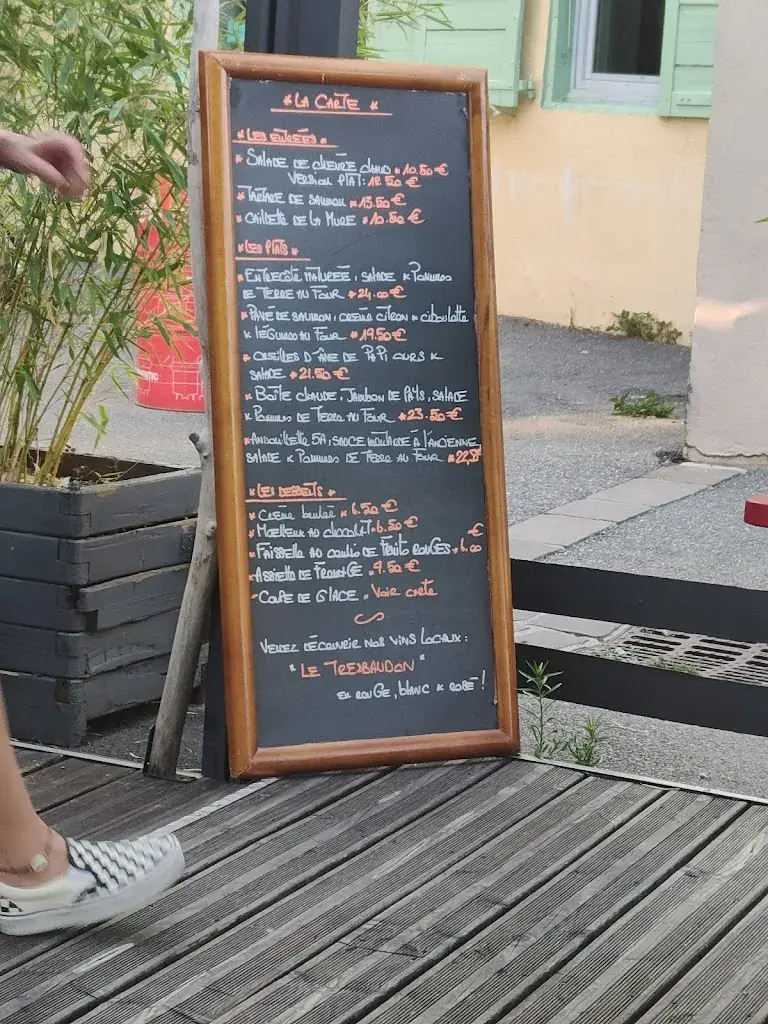 * LA CARTE *
* LES ENTRÉES *
* SALADE DE CHÈVRE CHAUD * 10.50 €
VERSION PLAT: 18.50 €
* TARTARE DE SAUMON * 13.50 €
* CAILLETTE DE LA MURE * 10.50 €
* LES PLATS *
* ENTRECÔTE MATURÉE, SALADE & POMMES
DE TERRE AU FOUR * 24.00 €
* PAVÉ DE SAUMON, CRÈME CITRON & CIBOULETTE
& LÉGUMES AU FOUR * 19.50 €
* OREILLES D'ÂNE DE PAPI OURS &
SALADE * 21.50 €
* BOÎTE CHAUDE, JAMBON DE PAYS, SALADE
& POMMES DE TERRE AU FOUR * 23.50 €
* ANDOUILLETTE 5A, SAUCE MOUTARDE À L'ANCIENNE,
SALADE & POMMES DE TERRE AU FOUR * 22,50
* LES DESSERTS *
* CRÈME BRULÉE * 6.50 €
* MOELLEUX AU CHOCOLAT * 6.50 €
* FAISSELLE AU COULIS DE FRUITS ROUGES * 6.00 €
* ASSIETTE DE FROMAGE * 7.50 €
- COUPE DE GLACE * VOIR CARTE
VENEZ DÉCOUVRIR NOS VINS LOCAUX :
" LE TRESBAUDON "
EN ROUGE, BLANC & ROSÉ !